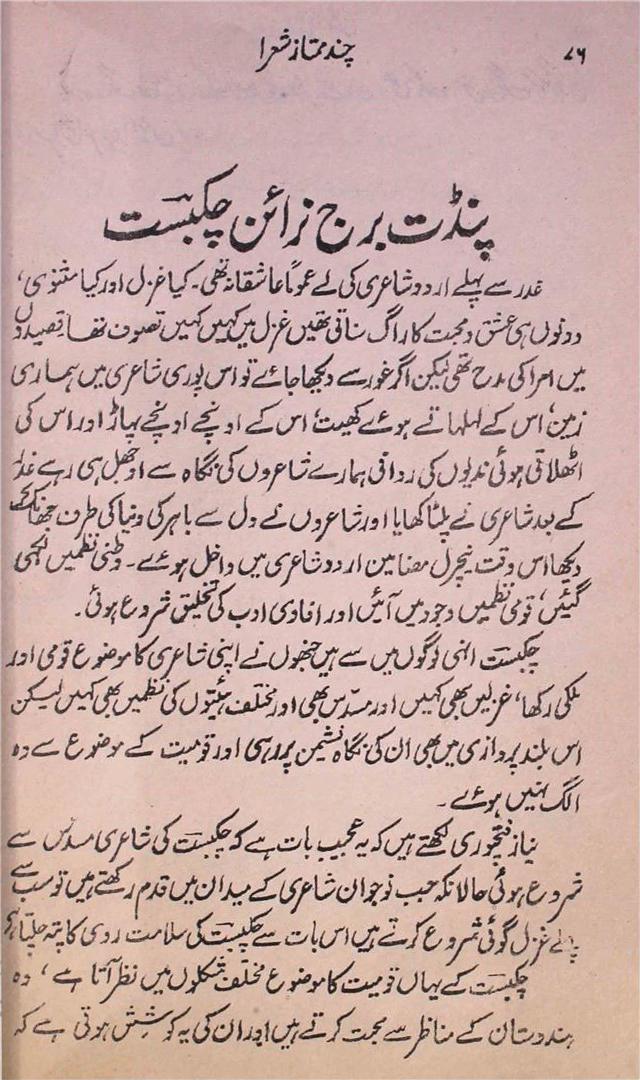 ۷۶
چند ممتاز شعرا
پنڈت برج نرائن چکبست
غدر سے پہلے اردو شاعری کی لے عموماً عاشقانہ تھی۔ کیا غزل اور کیا مثنوی،
دونوں ہی عشق و محبت کا راگ سناتی تھیں غزل میں کہیں کہیں تصوف تھا قصیدوں
میں امرا کی مدح تھی لیکن اگر غور سے دیکھا جائے تو اس پوری شاعری میں ہماری
زمین، اس کے لہلہاتے ہوئے کھیت، اس کے اونچے اونچے پہاڑ اور اس کی
اٹھلاتی ہوئی ندیوں کی روانی ہمارے شاعروں کی نگاہ سے اوجھل ہی رہے غدر
کے بعد شاعری نے پلٹا کھایا اور شاعروں نے دل سے باہر کی دنیا کی طرف جھانک کے
دیکھا اس وقت نیچرل مضامین اردو شاعری میں داخل ہوئے۔ وطنی نظمیں لکھی
گئیں، قومی نظمیں وجود میں آئیں اور افادی ادب کی تخلیق شروع ہوئی۔
چکبست انہی لوگوں میں سے ہیں جنھوں نے اپنی شاعری کا موضوع قومی اور
ملکی رکھا، غزلیں بھی کہیں اور مسدّس بھی اور مختلف ہیئتوں کی نظمیں بھی کہیں لیکن
اس بلند پروازی میں بھی ان کی نگاہ نشیمن پر رہی اور قومیت کے موضوع سے وہ
الگ نہیں ہوئے۔
نیاز فتحپوری لکھتے ہیں کہ یہ عجیب بات ہے کہ چکبست کی شاعری مسدس سے
شروع ہوئی حالانکہ جب نوجوان شاعری کے میدان میں قدم رکھتے ہیں تو سب سے
پہلے غزل گوئی شروع کرتے ہیں اس بات سے چکبست کی سلامت روی کا پتہ چلتا ہے
چکبست کے یہاں قومیت کا موضوع مختلف شکلوں میں نظر آتا ہے، وہ
ہندوستان کے مناظر سے محبت کرتے ہیں اور ان کی یہ کوشش ہوتی ہے کہ